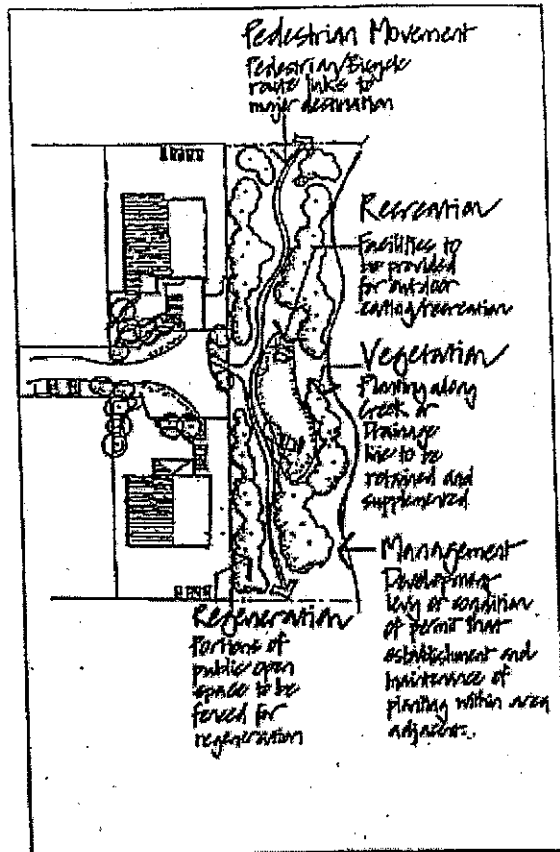 Pedestrian Movement
Pedestrian/Bicycle
route links to
major destination
Recreation
Facilities to
be provided
for outdoor
eating/recreation
Vegetation
Planting along
Creek or
Drainage
line to be
retained and
supplemented
Management
Development
levy or condition
of permit that
establishment and
maintenance of
planting within area
adjacent.
Regeneration
Portions of
public open
space to be
fenced for
regeneration